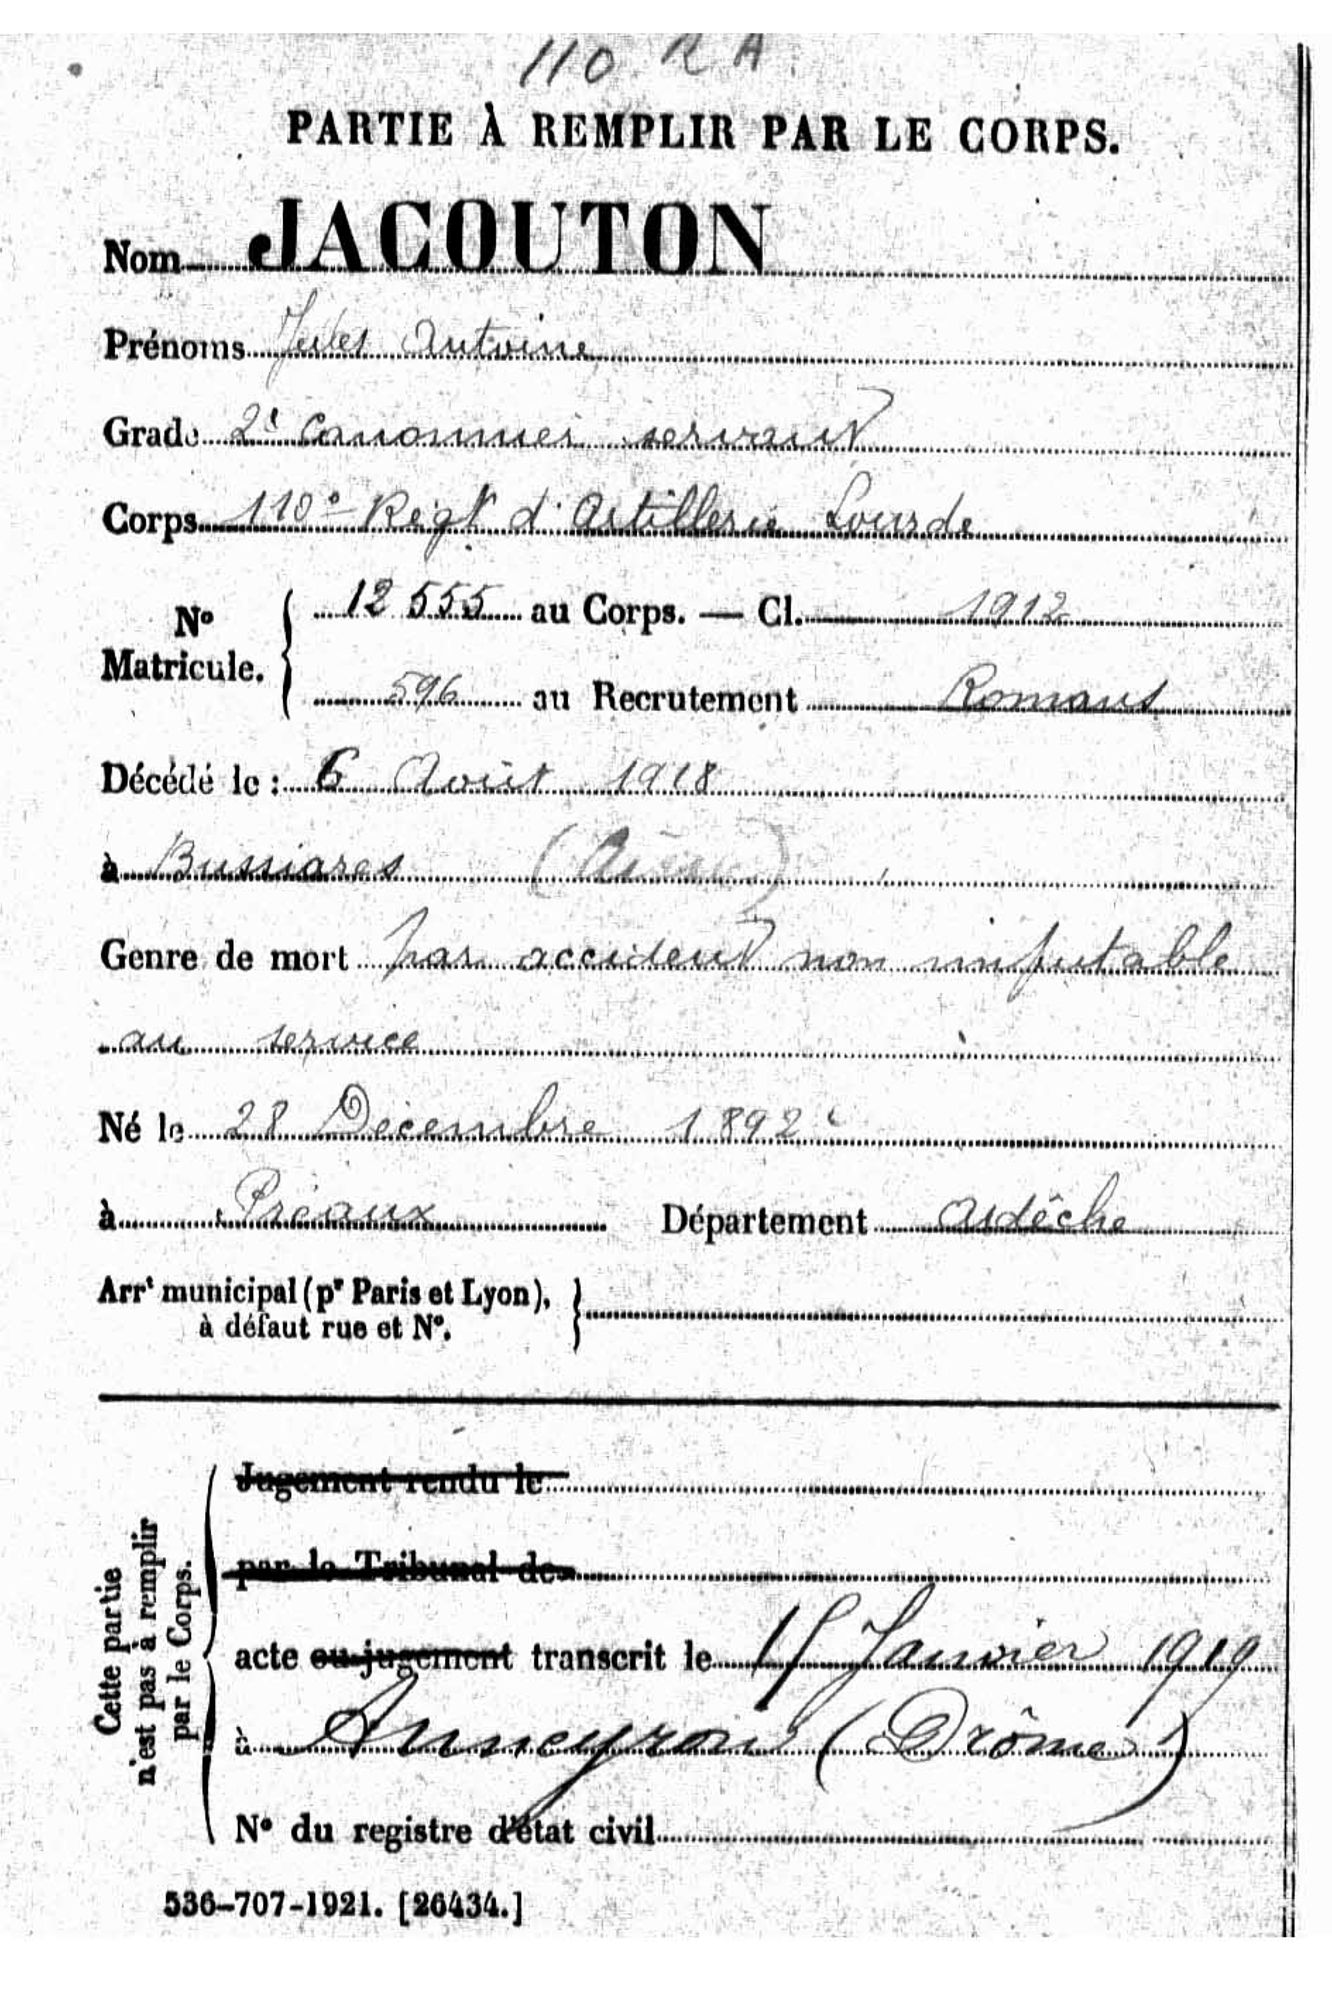 110 R A
PARTIE À REMPLIR PAR LE CORPS.
Nom JACOUTON
Prénoms Jules Antoine
Grade 2e canonnier servant
Corps 110e Régt d'Artillerie Lourde
No Matricule. 12 555 au Corps. — Cl. 1912
596 au Recrutement Romans
Décédé le : 6 Août 1918
à Bussiares (Aisne)
Genre de mort par accident non imputable
au service
Né le 28 Décembre 1892
à Préaux Département Ardèche
Arrt municipal (pr Paris et Lyon),
à défaut rue et No.
Cette partie
n'est pas à remplir
par le Corps.
Jugement rendu le
par le Tribunal de
acte ou jugement transcrit le 15 Janvier 1919
à Anneyron (Drôme)
No du registre d'état civil
536-707-1921. [26434.]